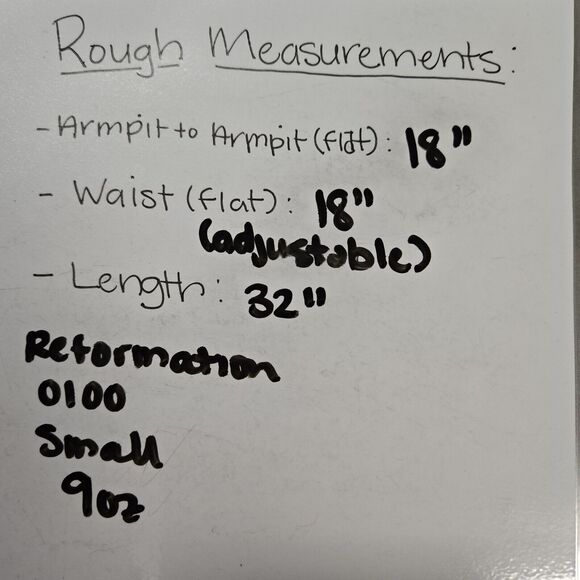 Rough Measurements:
- Armpit to Armpit (flat): 18"
- Waist (flat): 18"
(adjustable)
- Length: 32"
Reformation
0100
Small
9oz